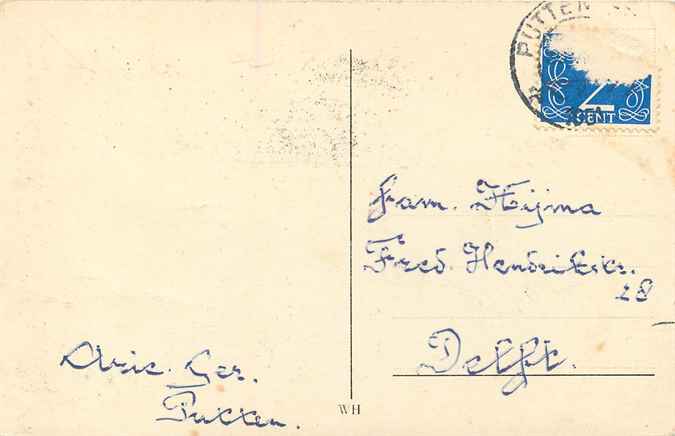 PUTTEN
2
CENT
Fam. Heijma
Fred. Hendrikstr.
28
Delft.
Arie. Ger.
Putten.
WH